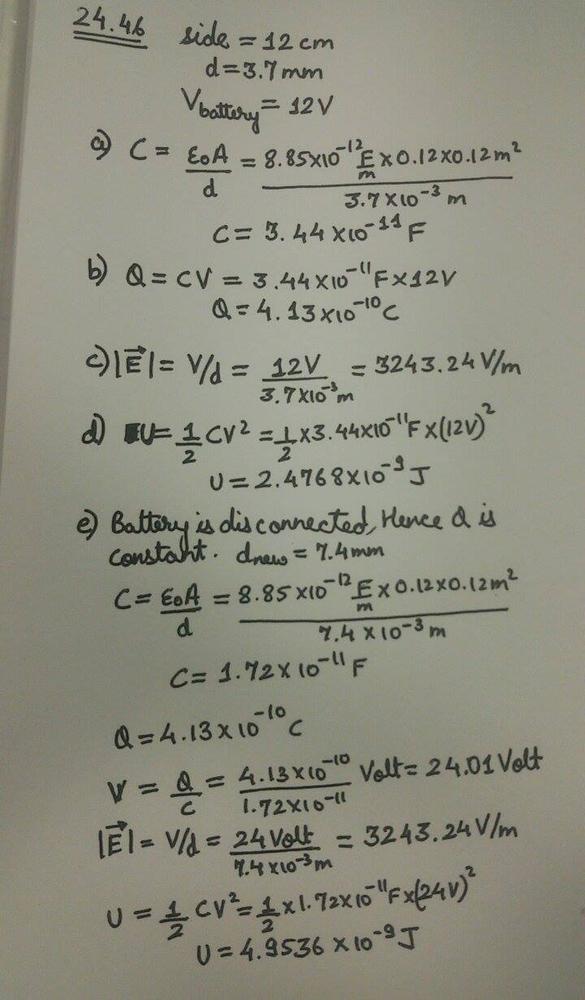 24.46 side = 12 cm
d = 3.7 mm
Vbattery = 12V
a) C = ε₀A/d = 8.85×10⁻¹² F/m × 0.12×0.12m² / 3.7×10⁻³ m
C = 3.44×10⁻¹¹ F
b) Q = CV = 3.44×10⁻¹¹F×12V
Q = 4.13×10⁻¹⁰C
c) |E⃗| = V/d = 12V / 3.7×10⁻³m = 3243.24 V/m
d) U = 1/2 CV² = 1/2 × 3.44×10⁻¹¹F×(12V)²
U = 2.4768×10⁻⁹ J
e) Battery is disconnected, Hence Q is
constant. dnew = 7.4mm
C = ε₀A/d = 8.85×10⁻¹² F/m × 0.12×0.12m² / 7.4×10⁻³ m
C = 1.72×10⁻¹¹ F
Q = 4.13×10⁻¹⁰ C
V = Q/C = 4.13×10⁻¹⁰ / 1.72×10⁻¹¹ Volt = 24.01 Volt
|E⃗| = V/d = 24 Volt / 7.4×10⁻³m = 3243.24 V/m
U = 1/2 CV² = 1/2 × 1.72×10⁻¹¹F×(24V)²
U = 4.9536×10⁻⁹ J